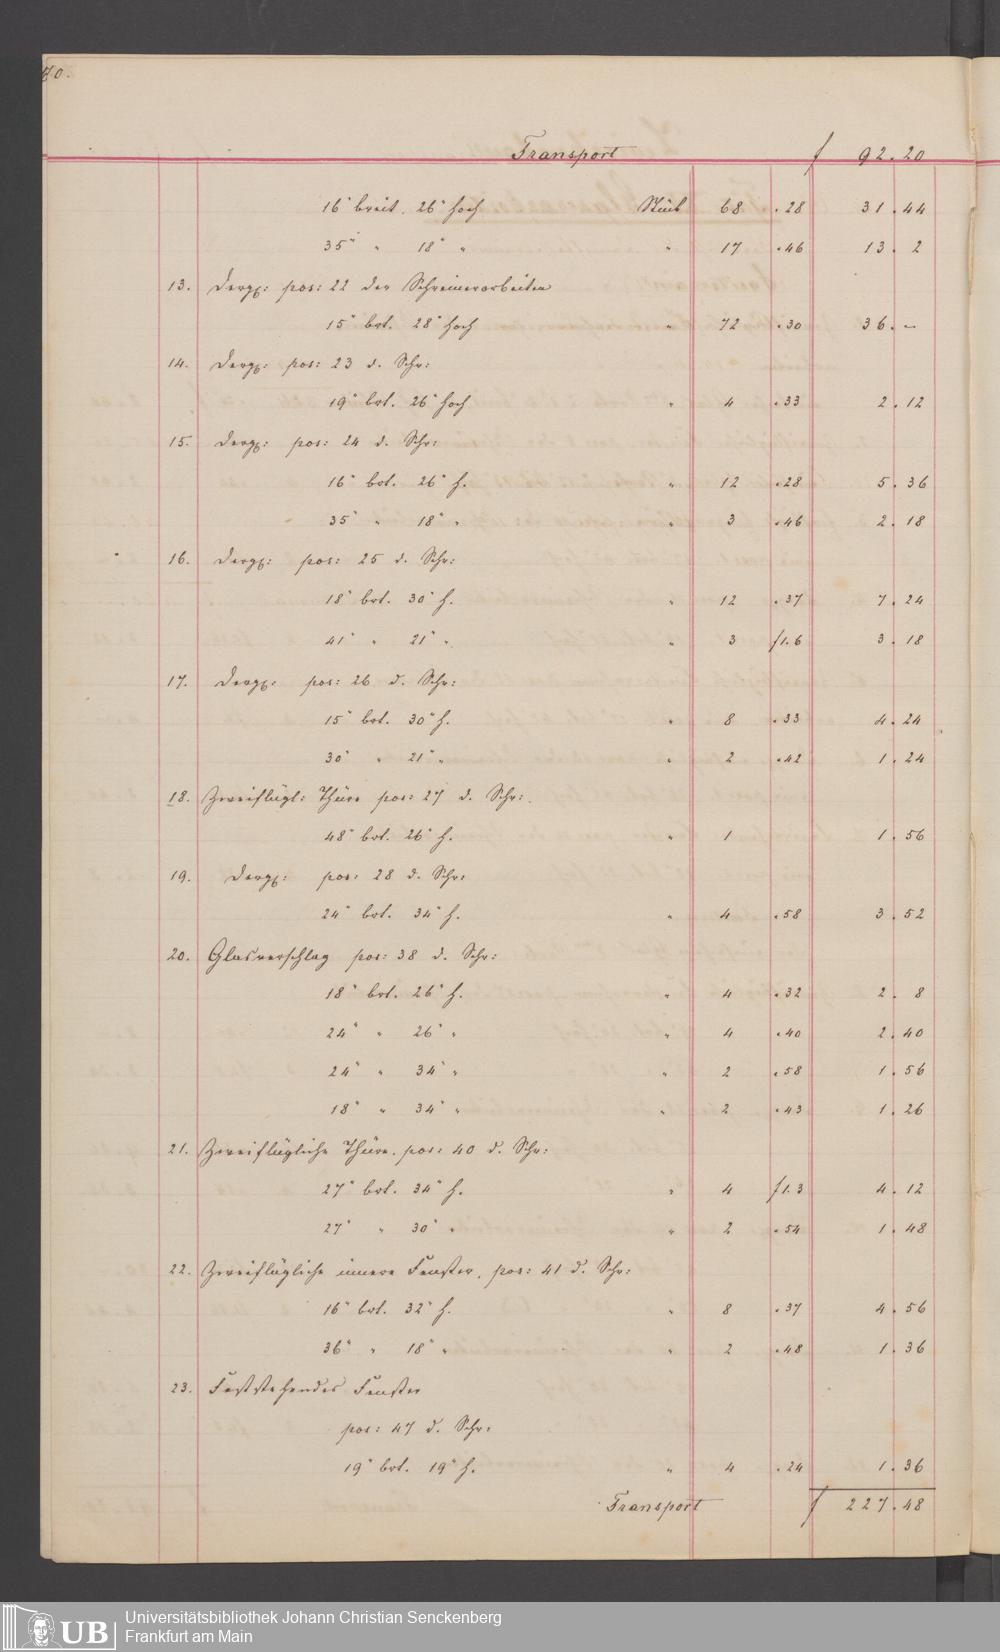 70.
Transport f 92. 20
16" breit. 26" hoch Stück 68 .28 31. 44
35" " 18" " " 17 .46 13. 2
13. Dergl: pos: 22 der Schreinerarbeiten
15" brt. 28" hoch " 72 .30 36. –
14. Dergl: pos: 23 d. Schr:
19" brt. 26" hoch " 4 .33 2. 12
15. Dergl: pos: 24 d. Schr:
16" brt. 26" h. " 12 .28 5. 36
35" " 18" " " 3 .46 2. 18
16. Dergl: pos: 25 d. Schr:
18" brt. 30" h. " 12 .37 7. 24
41" " 21" " " 3 f1.6 3. 18
17. Dergl: pos: 26 d. Schr:
15" brt. 30" h. " 8 .33 4. 24
30" " 21" " " 2 .42 1. 24
18. Zweiflügl: Thüre pos: 27 d. Schr:
48" brt. 26" h. " 1 1. 56
19. Dergl: pos: 28 d. Schr:
24" brt. 34" h. " 4 .58 3. 52
20. Glasverschlag pos: 38 d. Schr:
18" brt. 26" h. " 4 .32 2. 8
24" " 26" " " 4 .40 2. 40
24" " 34" " " 2 .58 1. 56
18" " 34" " " 2 .43 1. 26
21. Zweiflügliche Thüre. pos: 40 d. Schr:
27" brt. 34" h. " 4 f1.3 4. 12
27" " 30" " " 2 .54 1. 48
22. Zweiflügliche innere Fenster, pos: 41 d. Schr:
16" brt. 32" h. " 8 .37 4. 56
36" " 18" " " 2 .48 1. 36
23. Feststehendes Fenster
pos: 47 d. Schr:
19" brt. 19" h. " 4 .24 1. 36
Transport f 227. 48
UB
Universitätsbibliothek Johann Christian Senckenberg
Frankfurt am Main